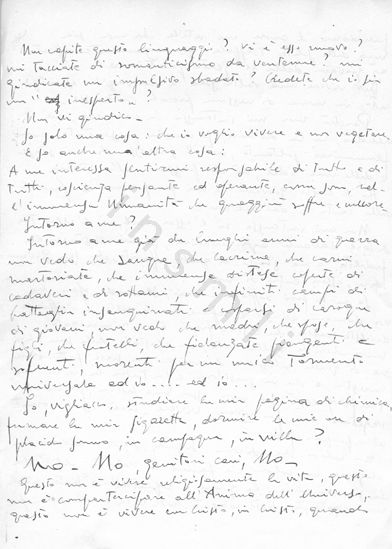 Non capite questo linguaggio? Vi è esso nuovo?
mi tacciate di romanticismo da ventenne? mi
giudicate un impulsivo sbadato? Credete che io sia
un "inesperto"?
Non vi giudico.
So solo una cosa: che io voglio vivere e non vegetare.
E so anche una altra cosa:
A me interessa sentirmi responsabile di tutto e di
tutti, coscienza pensante ed operante, nel-
l'immensa Umanità che quaggiù soffre e
Intorno a me?
Intorno a me già da lunghi anni di guerra
non vedo che sangue, che lacrime, che carni
martoriate, che immense distese coperte di
cadaveri e di rottami, che infiniti campi di
battaglia insanguinati cosparsi di carogne
di giovani, non vedo che madri, che spose, che
figli, che fratelli, che fidanzate piangenti e
sofferenti, morenti per un unico Tormento
universale ed io..... ed io...
Io, vigliacco, studiare la mia pagina di chimica,
fumare la mia sigaretta, dormire le mie ore di
placido sonno, in campagna, in villa?
No - No, genitori cari, No -
Questo non è vivere religiosamente la vita, questo
non è compartecipare all'Anima dell'Universo,
questo non è vivere con Cristo, in Cristo, quando
insmli